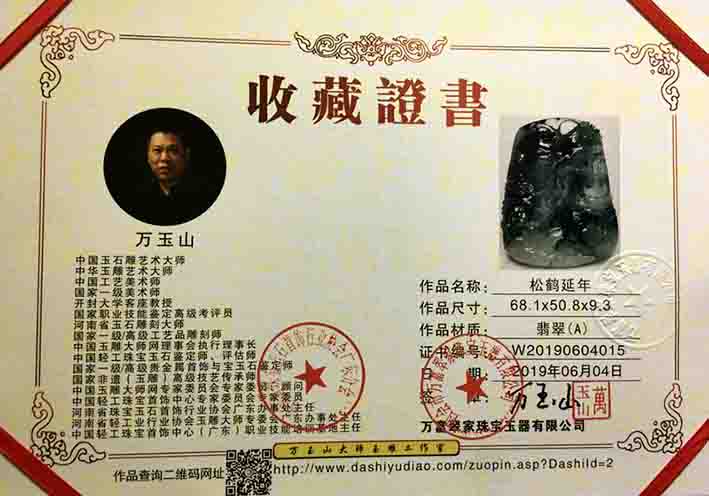 收藏證書
万玉山
中国玉石雕艺术大师
中华玉雕艺术大师
中国工艺美术师
国家一级美术师
开封大学客座教授
国家职业技能鉴定高级考评员
河南省玉石雕刻大师
国家一级/高级工艺品雕刻师
中国玉雕大师网理事会执行理事长
中国轻工珠宝玉石鉴定师、评估师
国家一级/高级贵金属首饰与宝玉石鉴定师
国家非遗(玉雕)高级技艺传承师
中国玉雕大师网专家委员会
顾问
中国轻工珠宝首饰中心专家委员会专家
河南省珠宝玉石首饰行业协会广东办事处主任
河南省轻工业行业协会玉雕大师专业委员会
中国轻工珠宝首饰中心(广东)职业技能培训基地主任
作品名称: 松鹤延年
作品尺寸: 68.1x50.8x9.3
作品材质: 翡翠(A)
证书编号: W20190604015
日期: 2019年06月04日
万玉山
萬玉山
万富翠家珠宝玉器有限公司
万玉山大师玉雕工作室
作品查询二维码网址
http://www.dashiyudiao.com/zuopin.asp?DashiId=2